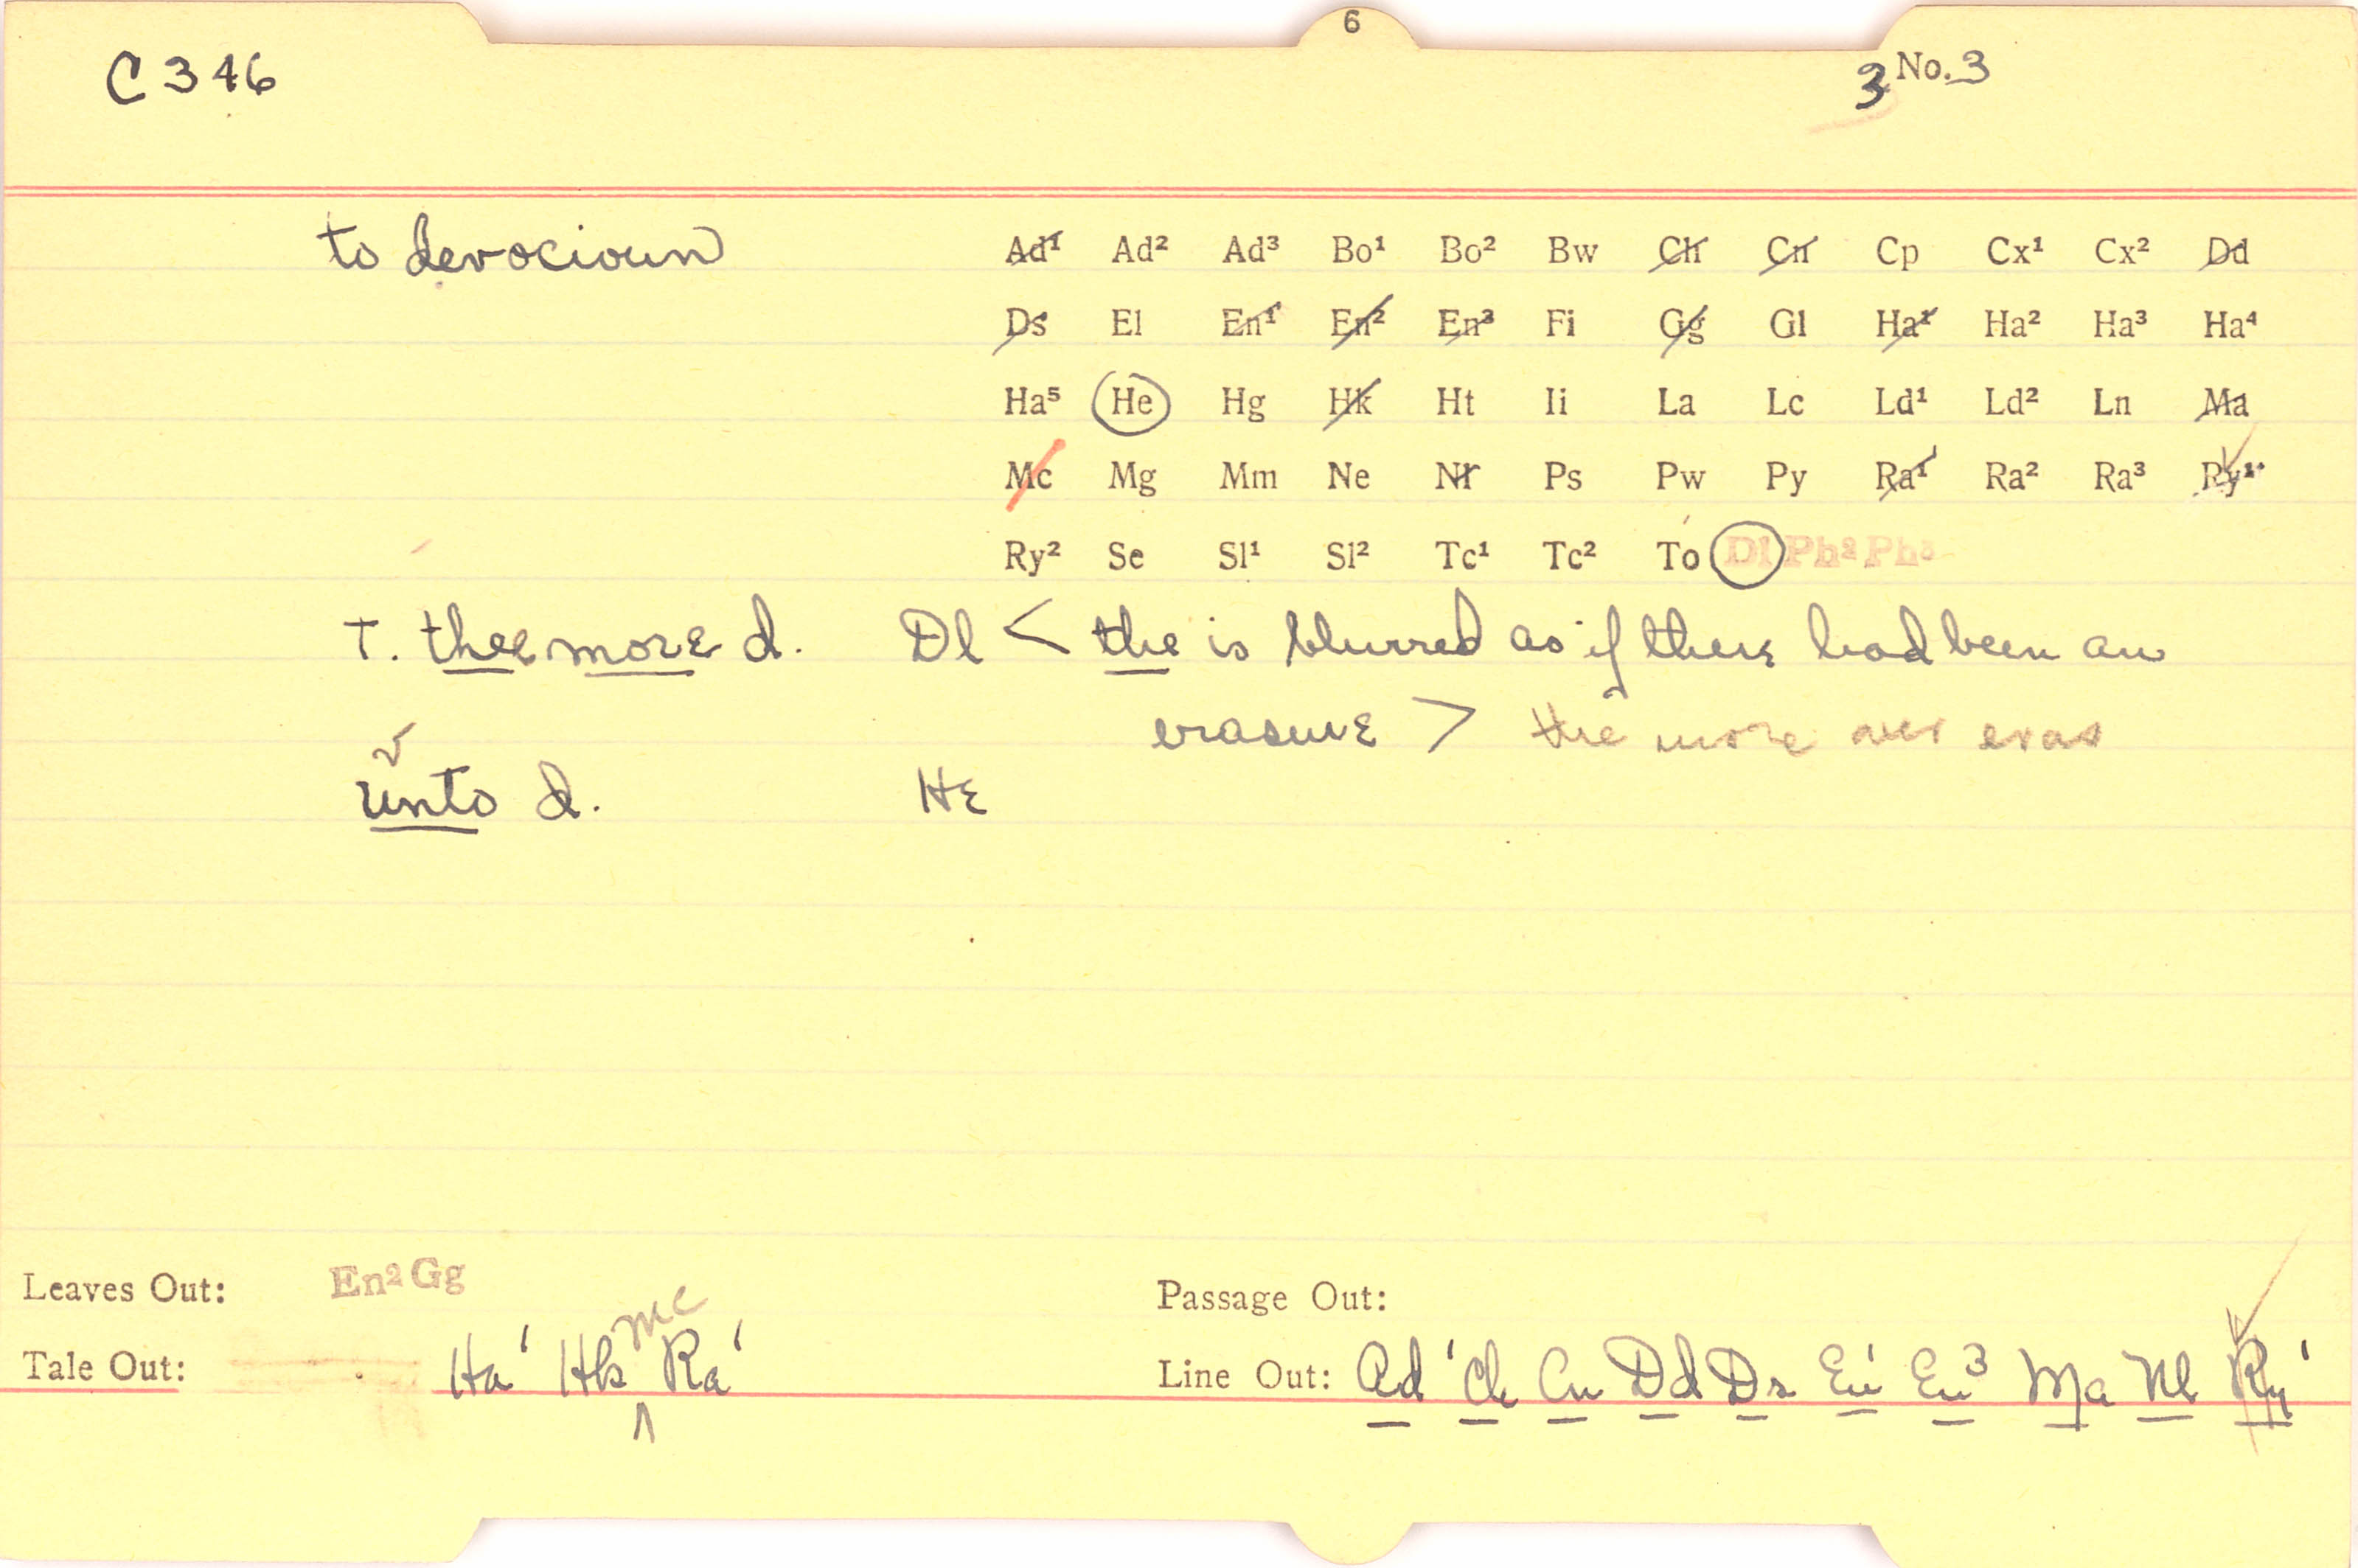 6
C 346
3 No. 3
to devocioun
Ad¹ Ad² Ad³ Bo¹ Bo² Bw Ch Cn Cp Cx¹ Cx² Dd
Ds El En¹ En² En³ Fi Gg Gl Ha¹ Ha² Ha³ Ha⁴
Ha⁵ He Hg Hk Ht Ii La Lc Ld¹ Ld² Ln Ma
Mc Mg Mm Ne Nl Ps Pw Py Ra¹ Ra² Ra³ Ry¹
Ry² Se Sl¹ Sl² Tc¹ Tc² To Dl Ph² Ph³
T. thee more d. Dl < the is blurred as if there had been an
erasure > the more over eras
unto d. He
Leaves Out: En² Gg
Passage Out:
Tale Out: Ha¹ Hk Mc Ra¹
Line Out: Ad¹ Ch Cn Dd Ds En¹ En³ Ma Nl Ry¹